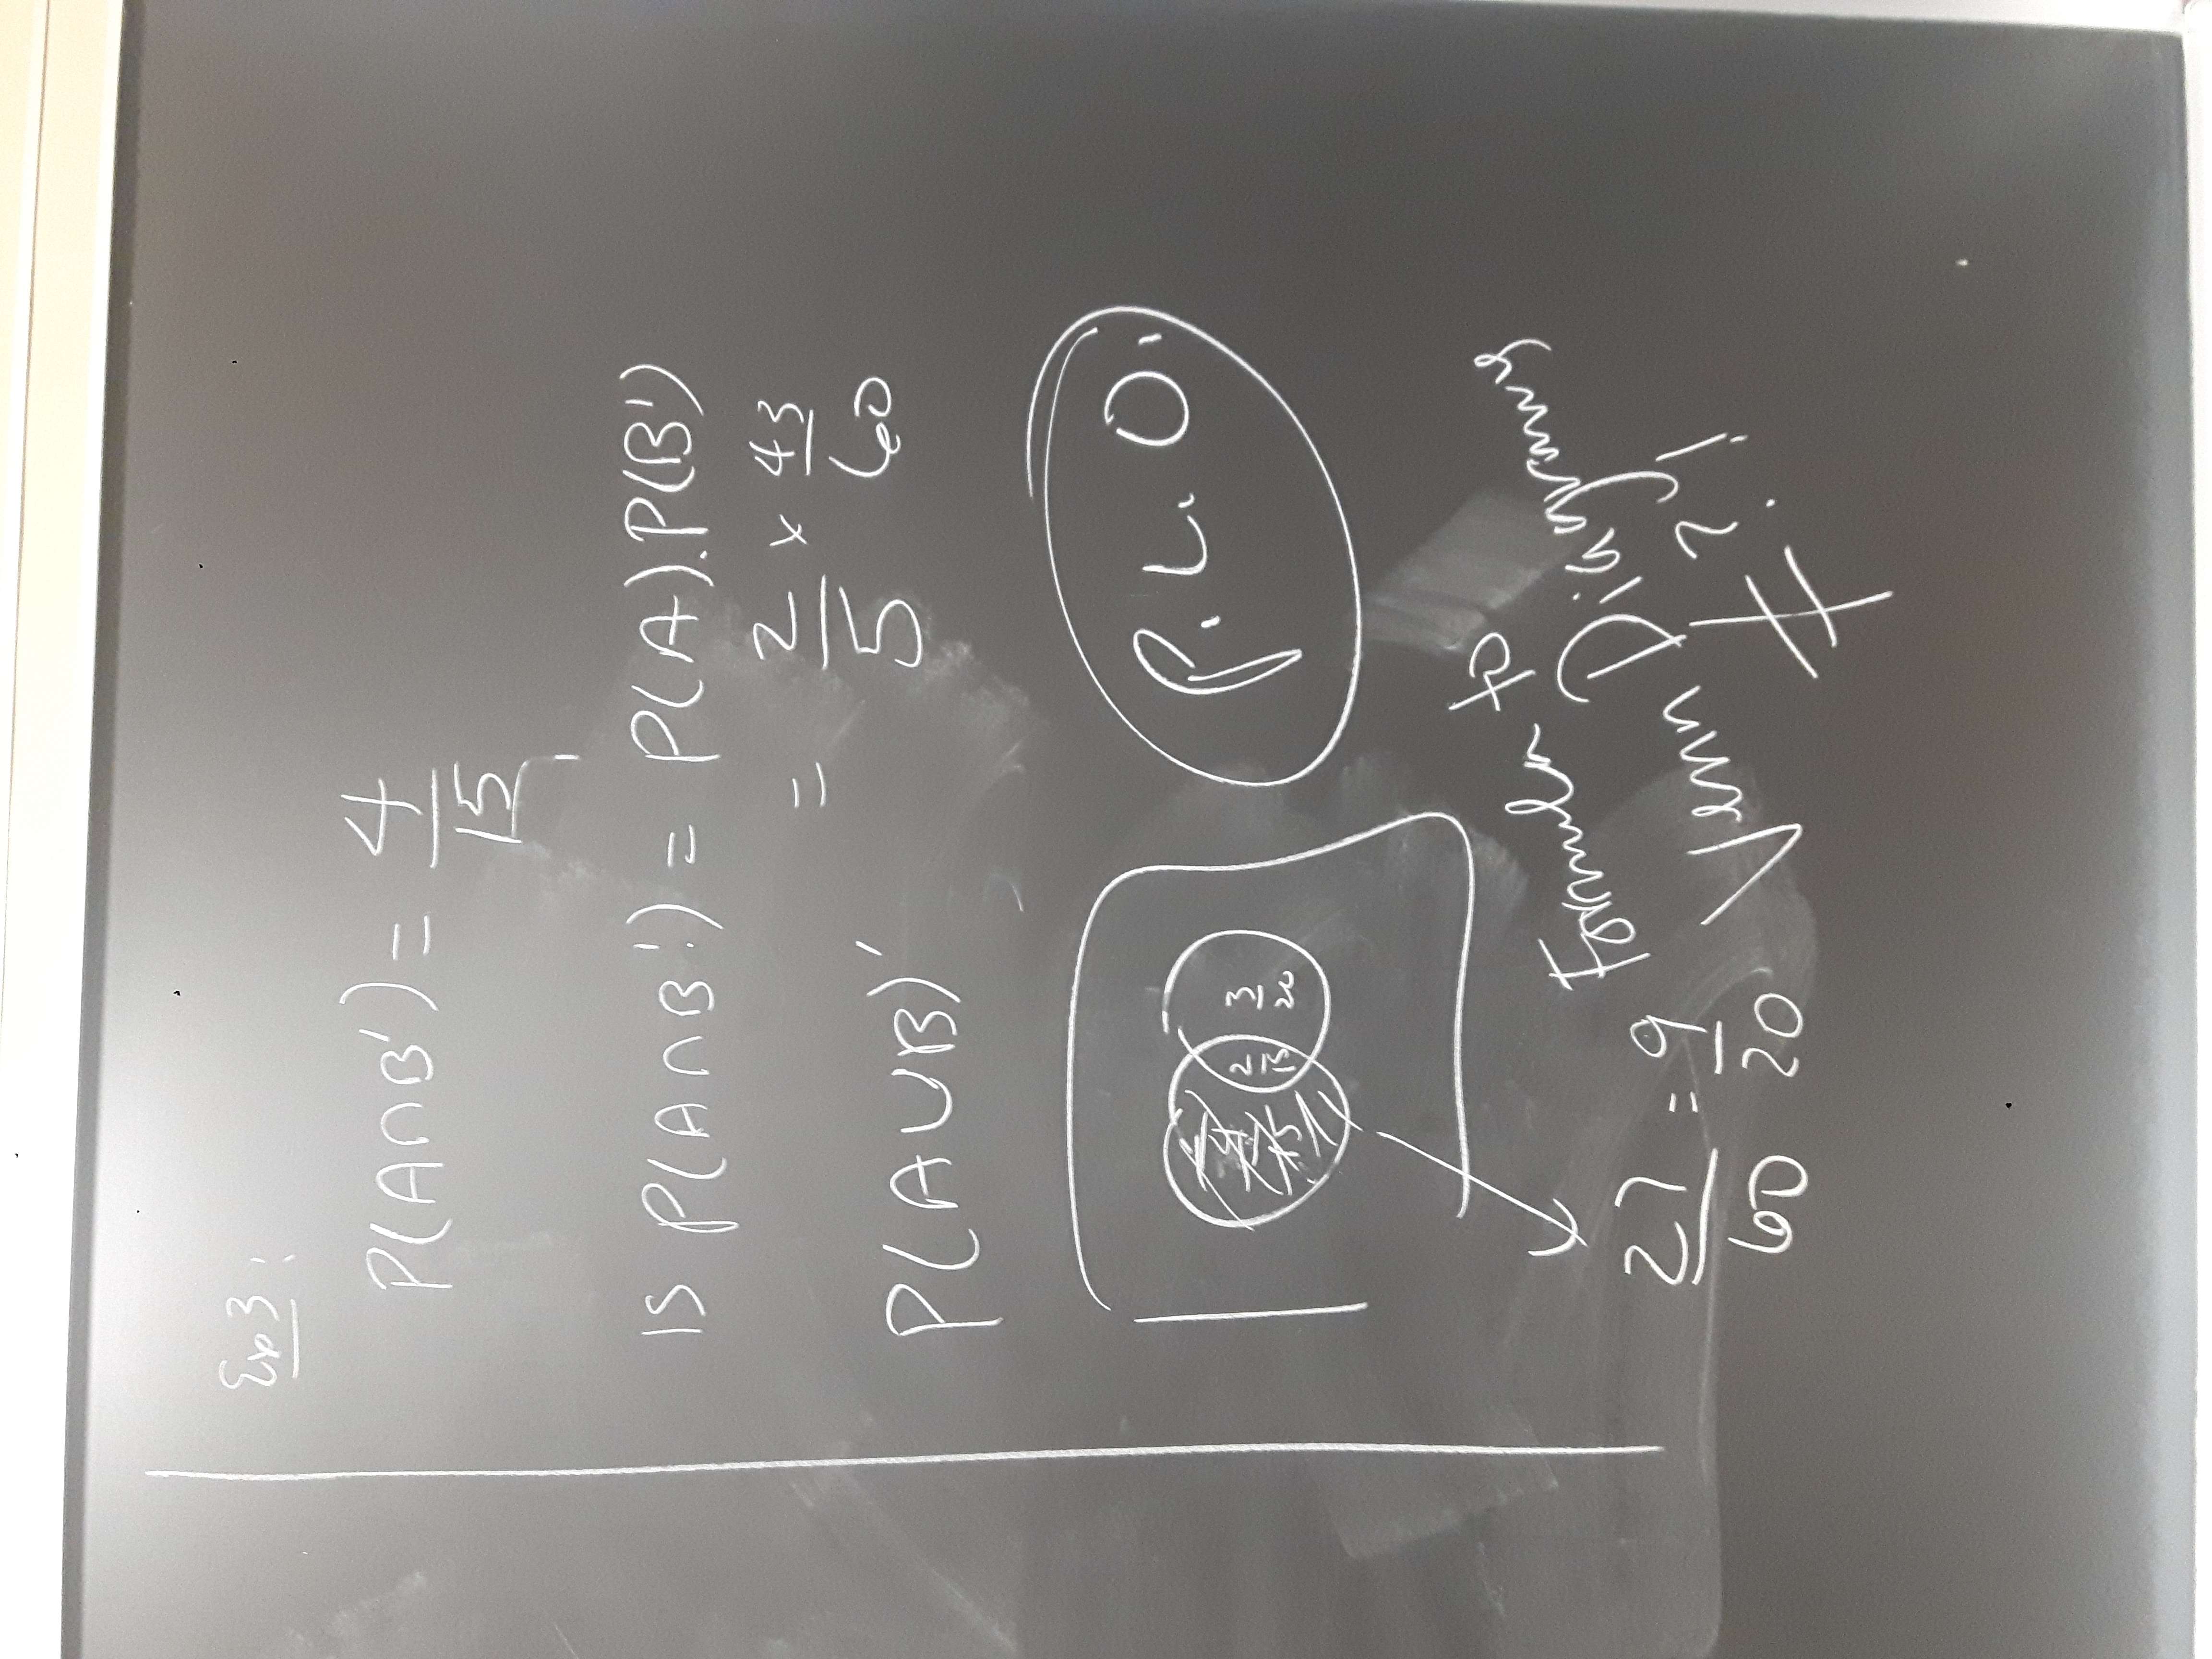 Exp3:
P(A∩B') = 4/15
IS P(A∩B') = P(A).P(B')
= 2/5 × 43/60
P(A∪B)'
P.L.O.
2/15 3/20
27/60 = 9/20
Formula to
Venn Diagrams